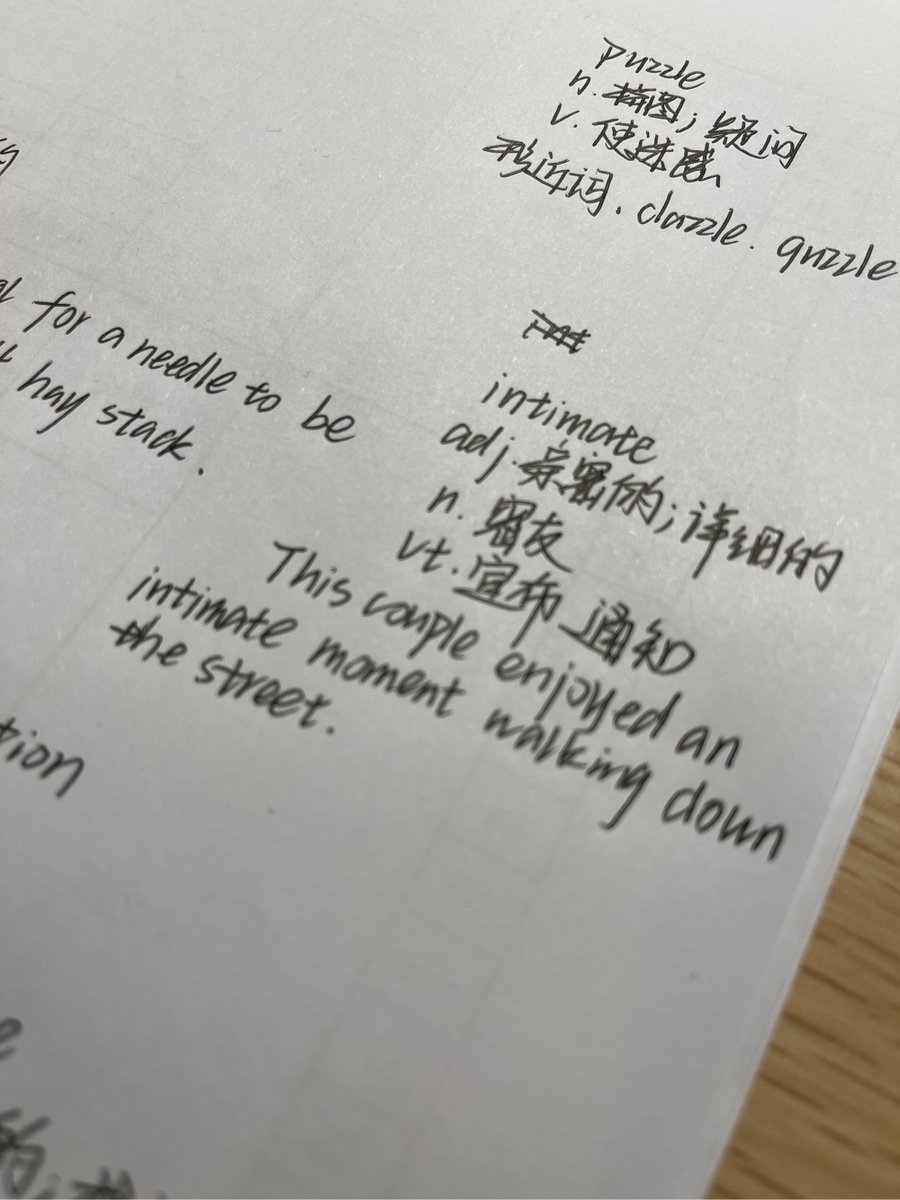 puzzle
n. 拼图; 疑问
v. 使迷惑
形近词. dazzle. guzzle
的
for a needle to be
hay stack.
intimate
adj. 亲密的; 详细的
n. 密友
vt. 宣布 通知
This couple enjoyed an
intimate moment walking down
the street.
tion
e
的;